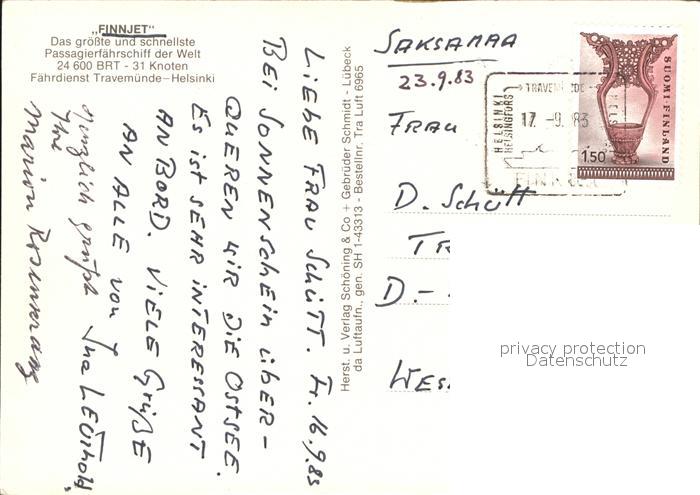 „FINNJET"
Das größte und schnellste
Passagierfährschiff der Welt
24 600 BRT - 31 Knoten
Fährdienst Travemünde–Helsinki
LIEBE FRAU SCHÜTT. Fr. 16.9.83
BEI SONNENSCHEIN ÜBER-
QUEREN WIR DIE OSTSEE.
ES IST SEHR INTERESSANT
AN BORD. VIELE GRÜßE
AN ALLE VON
Ina
Herzlich grüßt
Ihre
Marion
Herst. u. Verlag Schöning & Co + Gebrüder Schmidt - Lübeck
da Luftaufn., gen. SH 1-43313 - Bestellnr. Tra Luft 6965
SAKSAMAA
23.9.83
FRAU
D. Schütt
TR
D.-
WES
HELSINKI
HELSINGFORS
17. -9. 83
SUOMI-FINLAND
1,50
privacy protection
Datenschutz